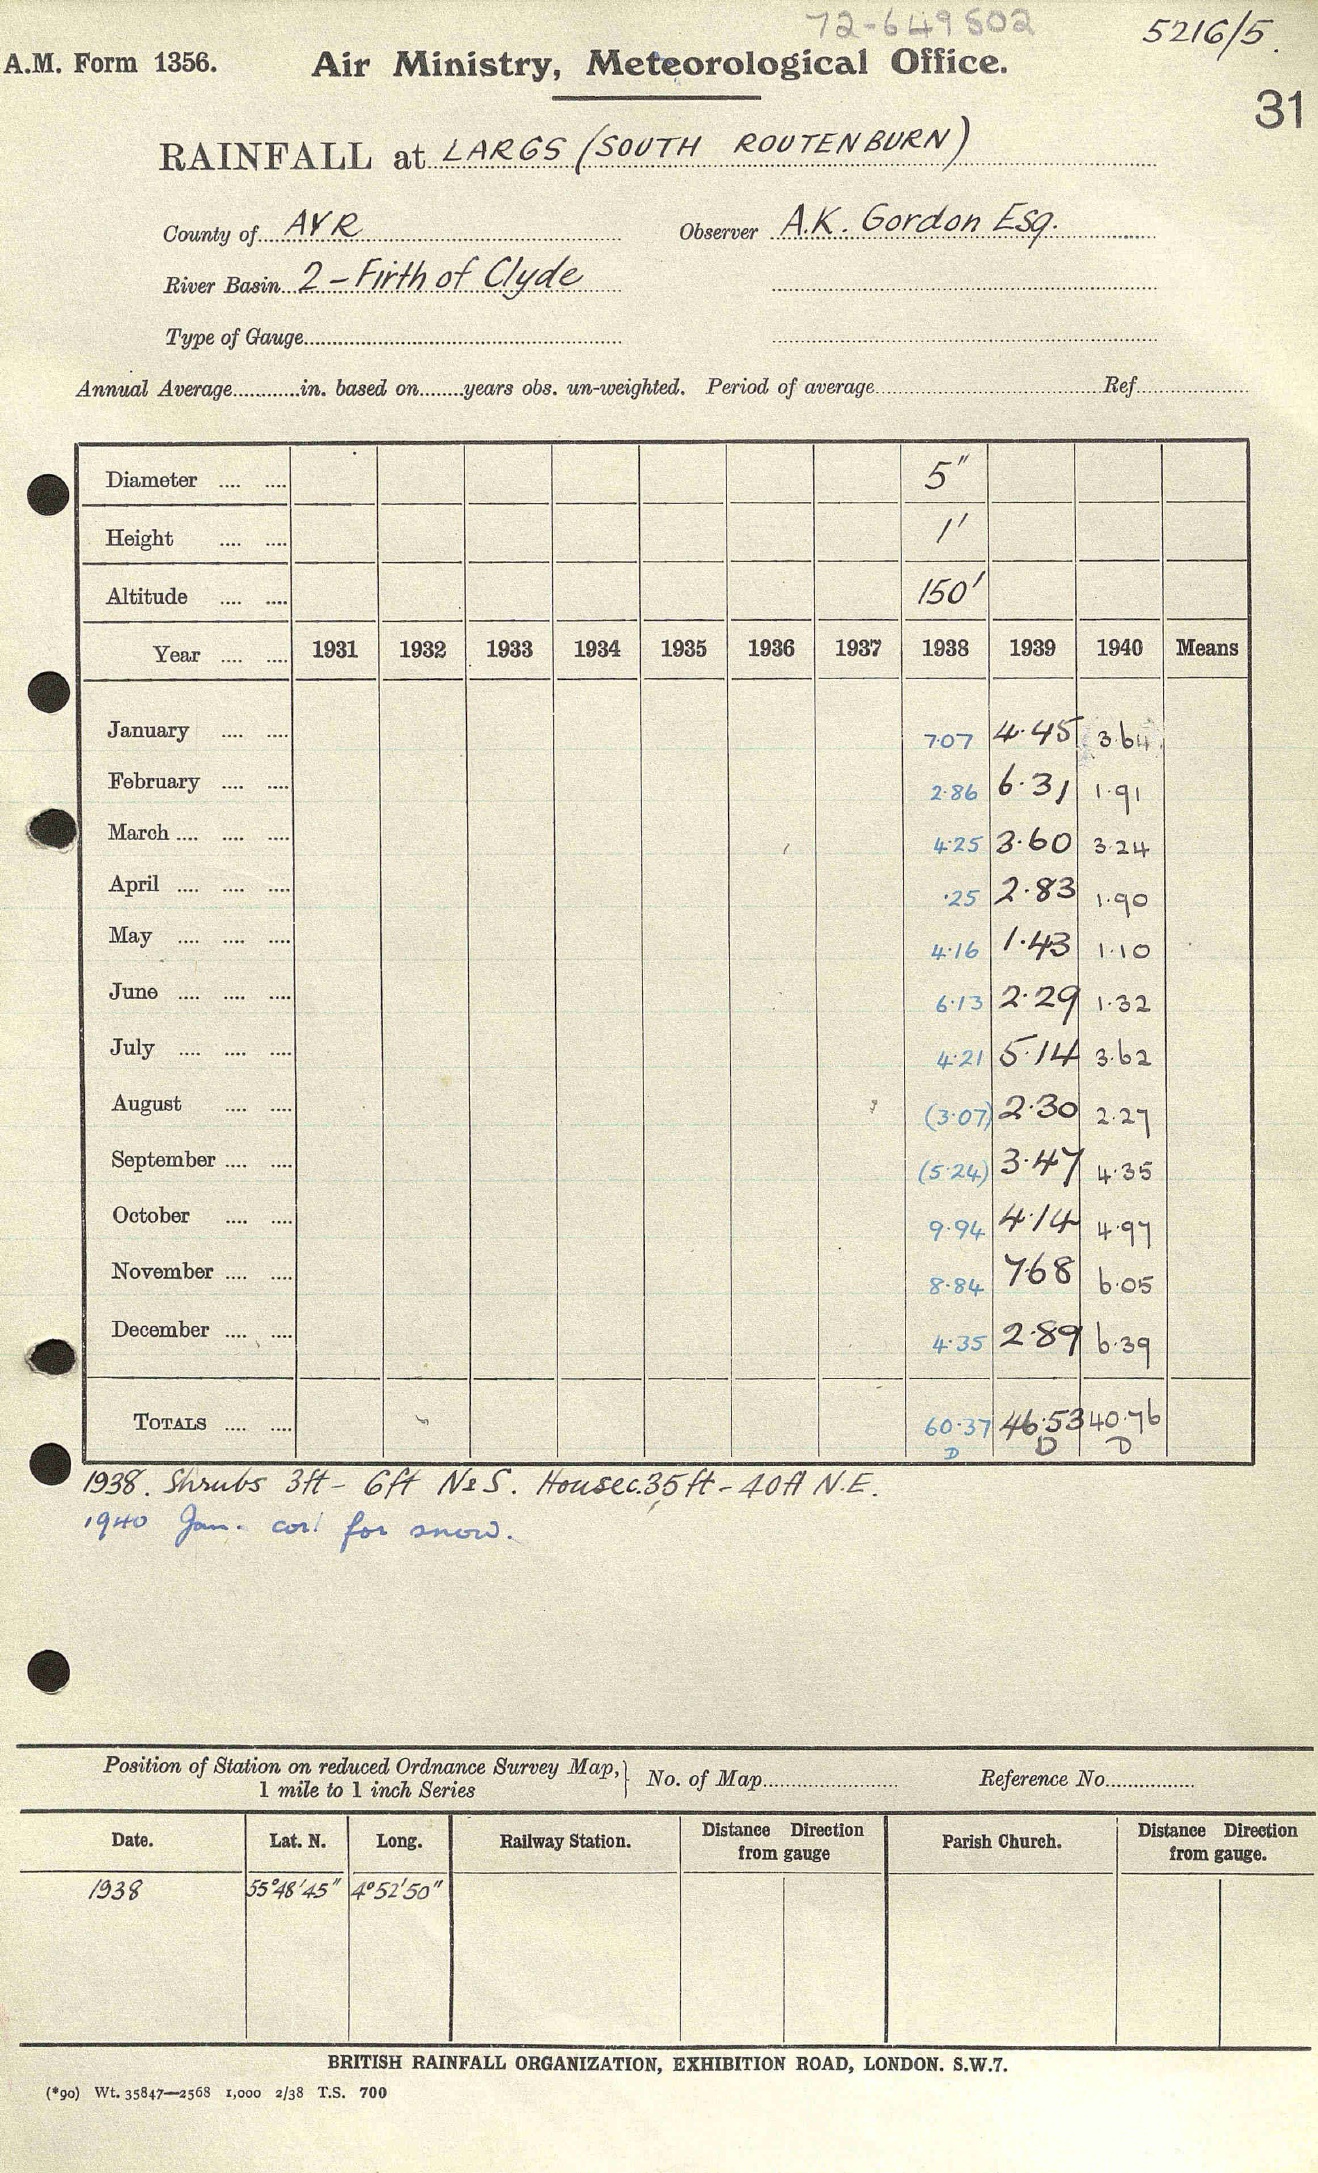 72-649502
5216/5.
A.M. Form 1356. Air Ministry, Meteorological Office.
31
RAINFALL at LARGS (SOUTH ROUTENBURN)
County of AYR Observer A.K. Gordon Esq.
River Basin 2 - Firth of Clyde
Type of Gauge
Annual Average in. based on years obs. un-weighted. Period of average Ref
Diameter 5"
Height 1'
Altitude 150'
Year 1931 1932 1933 1934 1935 1936 1937 1938 1939 1940 Means
January 7.07 4.45 3.64
February 2.86 6.31 1.91
March 4.25 3.60 3.24
April .25 2.83 1.90
May 4.16 1.43 1.10
June 6.13 2.29 1.32
July 4.21 5.14 3.62
August (3.07) 2.30 2.27
September (5.24) 3.47 4.35
October 9.94 4.14 4.97
November 8.84 7.68 6.05
December 4.35 2.89 6.39
TOTALS 60.37 46.53 40.76
D D D
1938. Shrubs 3ft - 6ft N & S. House c.35ft - 40ft N.E.
1940 Jan. cor. for snow.
Position of Station on reduced Ordnance Survey Map, 1 mile to 1 inch Series } No. of Map Reference No
Date. Lat. N. Long. Railway Station. Distance Direction from gauge Parish Church. Distance Direction from gauge.
1938 55°48'45" 4°52'50"
BRITISH RAINFALL ORGANIZATION, EXHIBITION ROAD, LONDON. S.W.7.
(*90) Wt. 35847—2568 1,000 2/38 T.S. 700